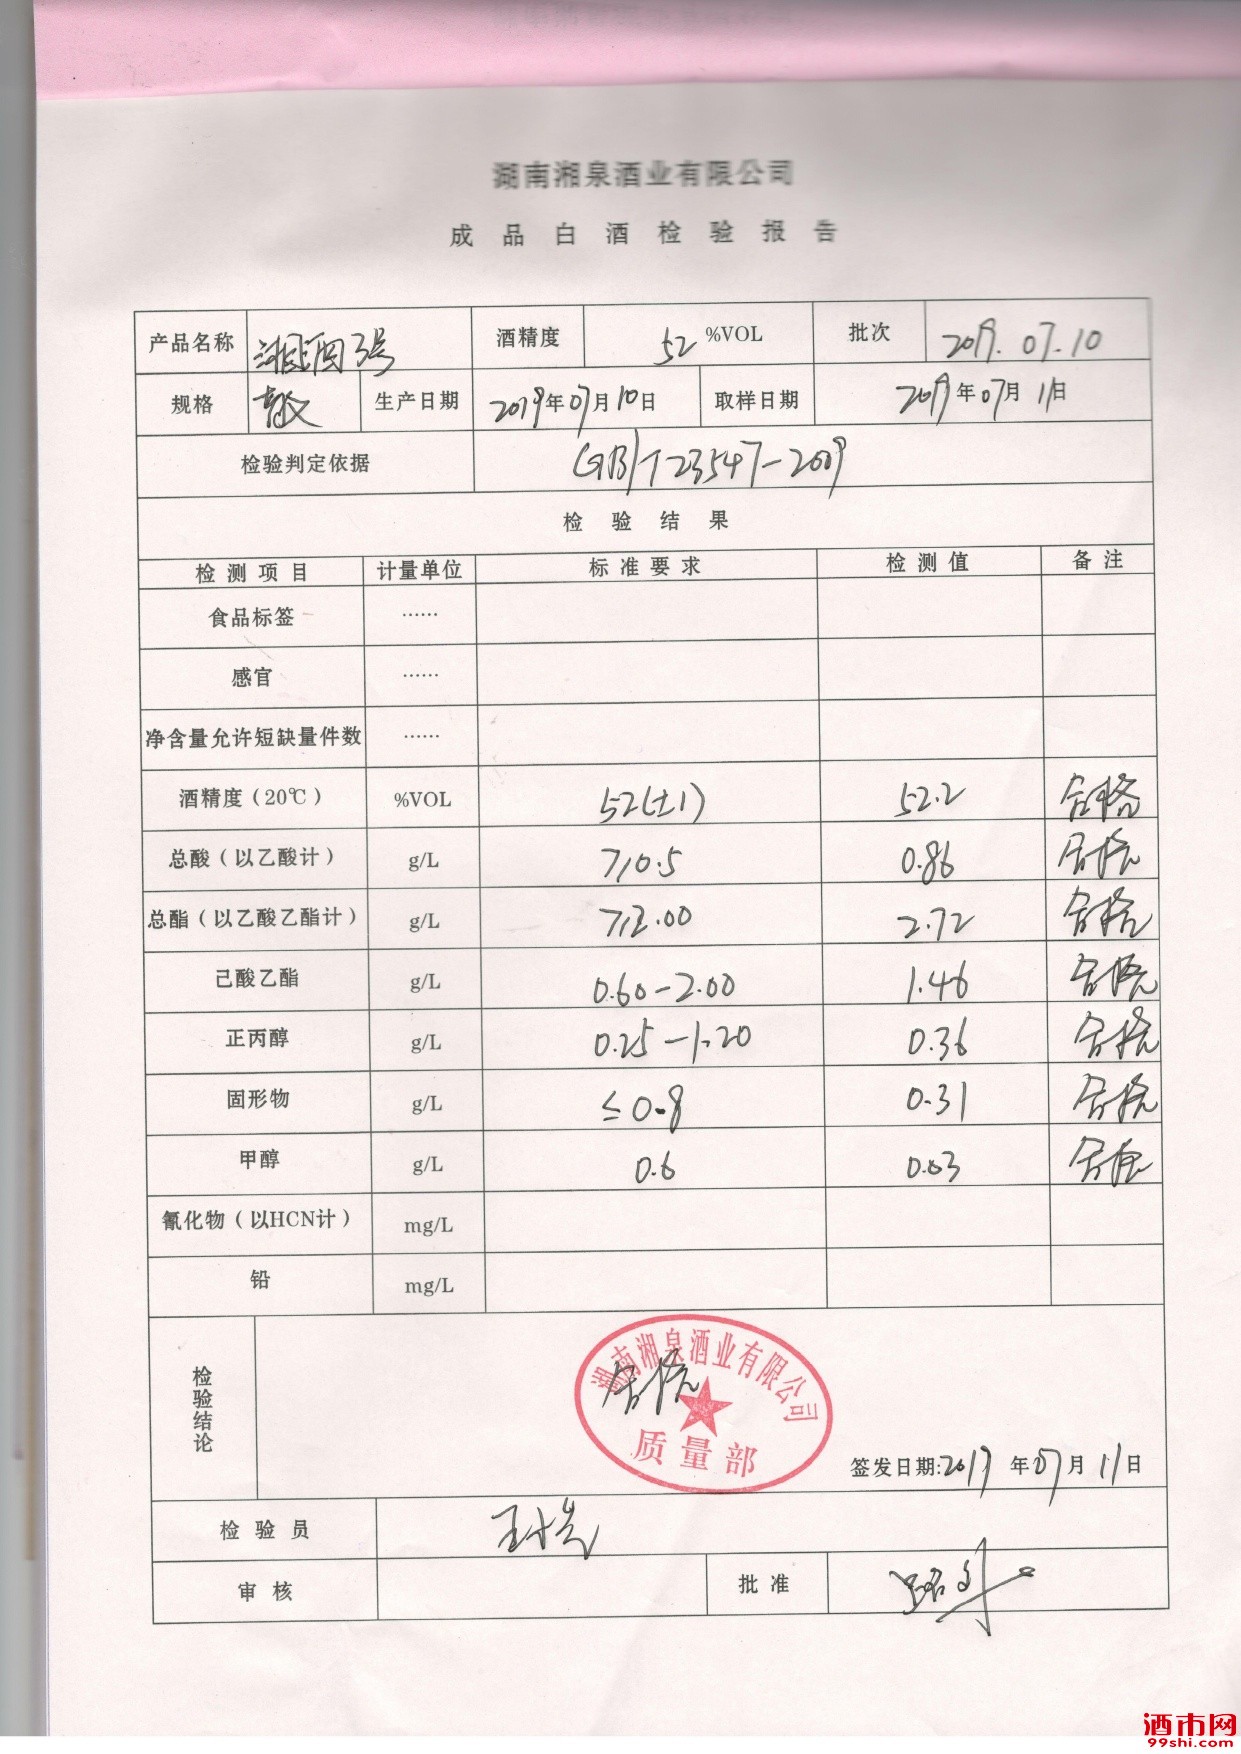 湖南湘泉酒业有限公司
成品白酒检验报告
产品名称 湘酒3号 酒精度 52 %VOL 批次 2019.07.10
规格 散 生产日期 2019年07月10日 取样日期 2019年07月11日
检验判定依据 GB/T23547-2009
检验结果
检测项目 计量单位 标准要求 检测值 备注
食品标签 ……
感官 ……
净含量允许短缺量件数 ……
酒精度(20℃) %VOL 52(±1) 52.2 合格
总酸(以乙酸计) g/L ≥0.5 0.86 合格
总酯(以乙酸乙酯计) g/L ≥2.00 2.72 合格
己酸乙酯 g/L 0.60-2.00 1.46 合格
正丙醇 g/L 0.25-1.20 0.36 合格
固形物 g/L ≤0.8 0.31 合格
甲醇 g/L 0.6 0.03 合格
氰化物(以HCN计) mg/L
铅 mg/L
检验结论 合格
湖南湘泉酒业有限公司
质量部
签发日期:2019年07月11日
检验员
审核 批准
酒市网
99shi.com